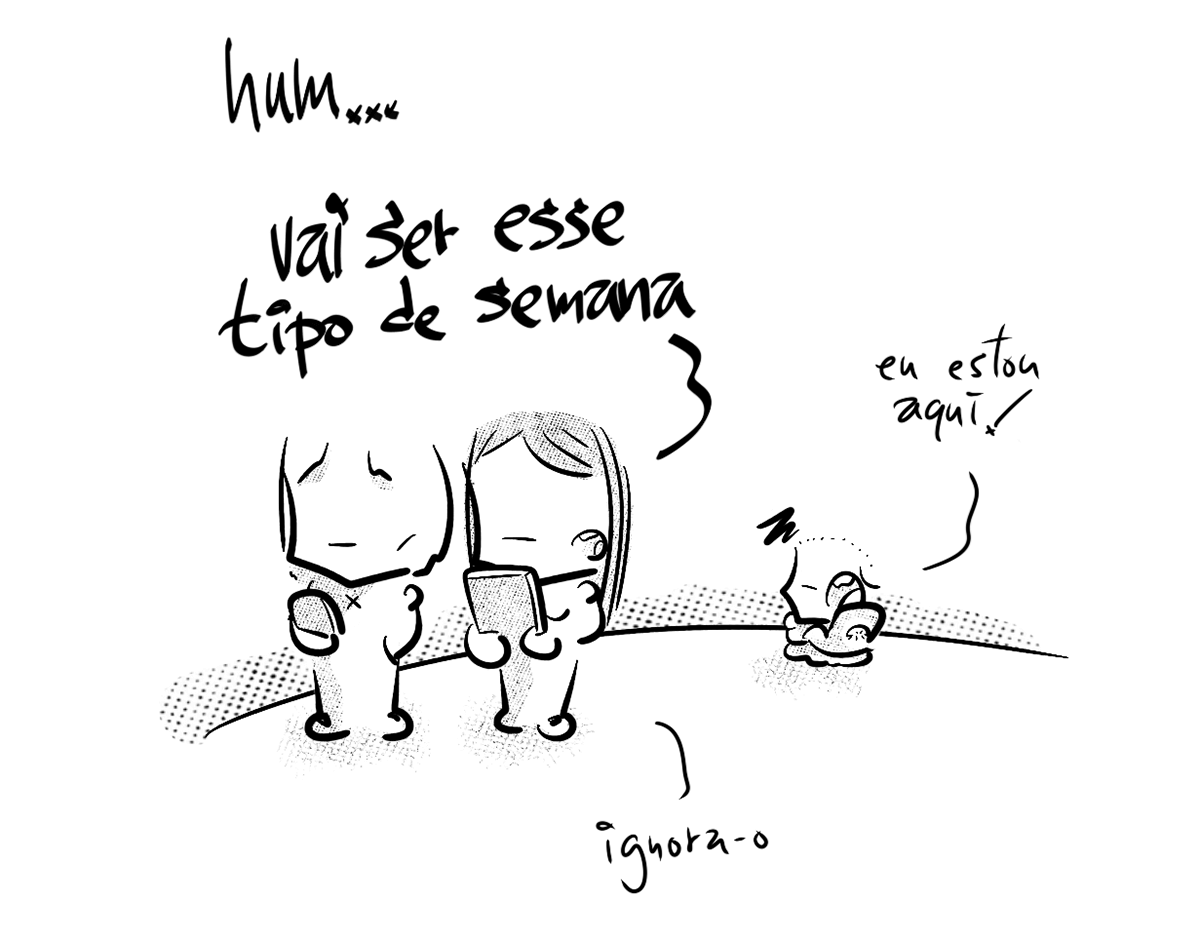 hum...
vai ser esse
tipo de semana
eu estou
aqui!
ignora-o